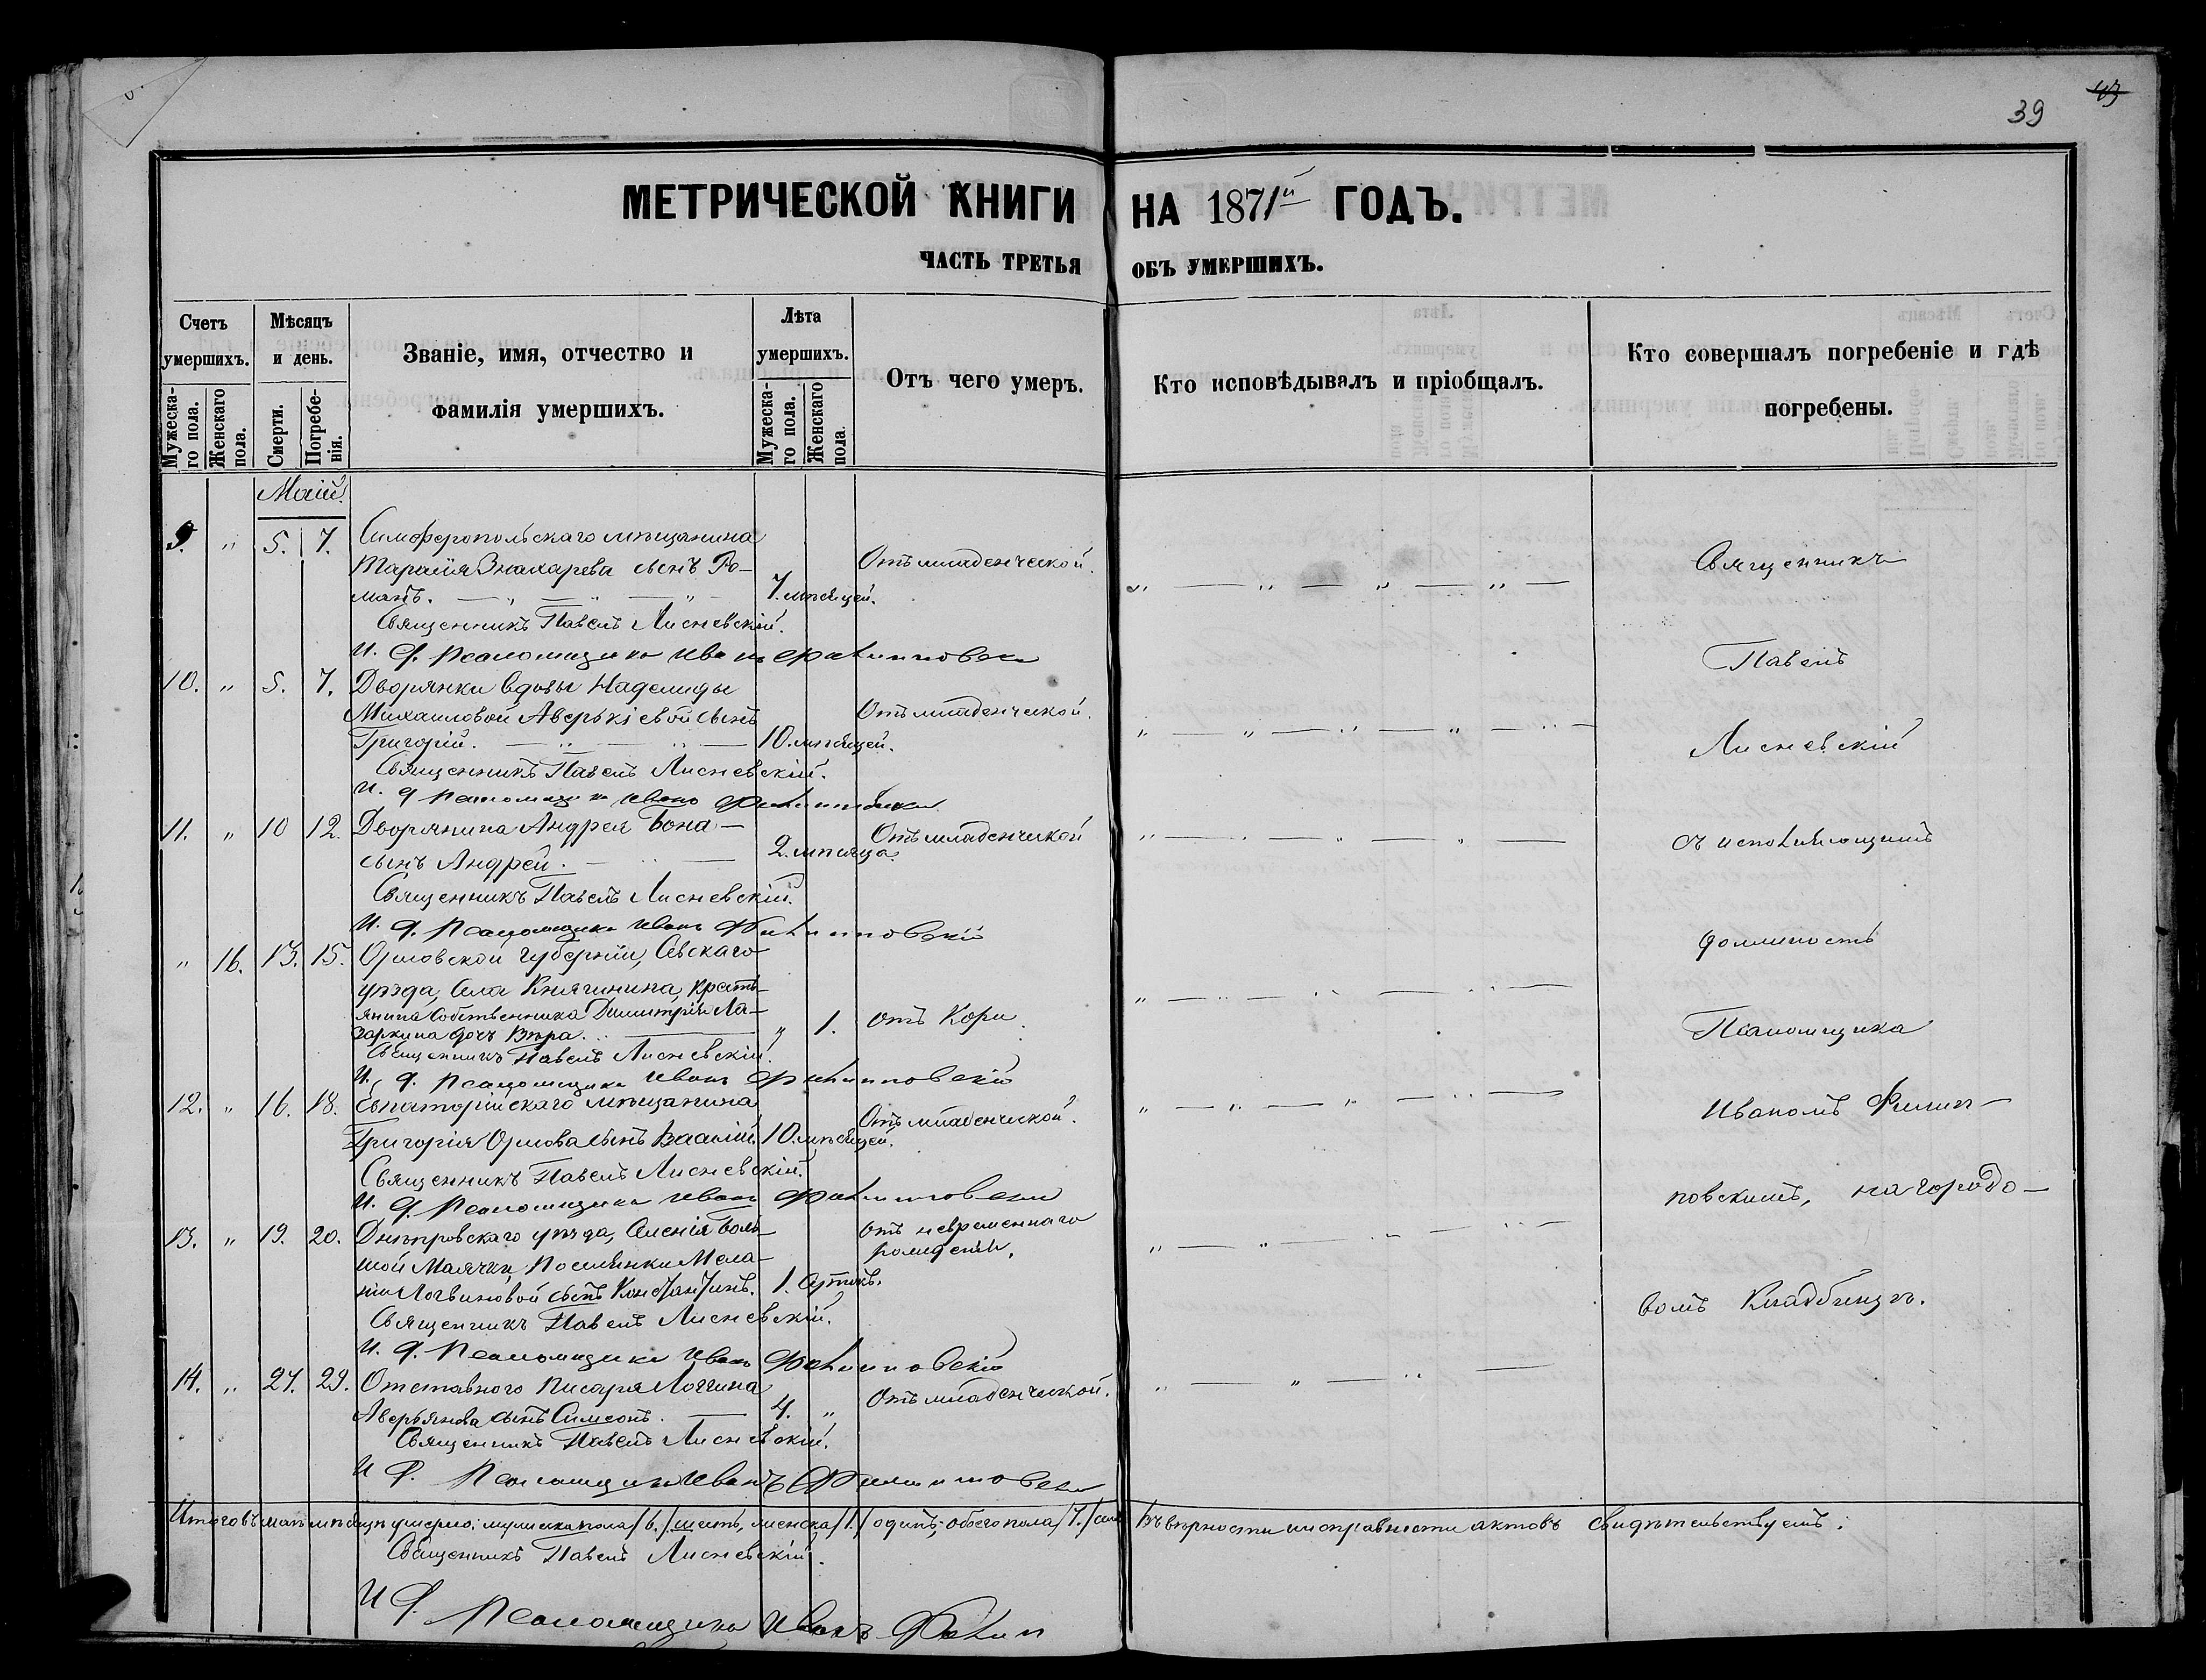 39
43
МЕТРИЧЕСКОЙ КНИГИ НА 1871й ГОДЪ.
ЧАСТЬ ТРЕТЬЯ ОБЪ УМЕРШИХЪ.
Счетъ умершихъ.
Мужеска-го пола.
Женскаго пола.
Мѣсяцъ и день.
Смерти.
Погребе-нія.
Званіе, имя, отчество и фамилія умершихъ.
Лѣта умершихъ.
Мужеска-го пола.
Женскаго пола.
Отъ чего умеръ.
Кто исповѣдывалъ и пріобщалъ.
Кто совершалъ погребеніе и гдѣ погребены.
Маій.
9. " 5. 7. Симферопольскаго мѣщанина
Тарасія Знахарева сынъ Ро-
манъ. 7. мѣсяцей. Отъ младенческой.
Священникъ Павелъ Лисневскій.
И. д. Псаломщика Иванъ Филипповскій
10. " 5. 7. Дворянки вдовы Надежды
Михаиловой Аверькіевой сынъ
Григорій. 10. мѣсяцей. Отъ младенческой.
Священникъ Павелъ Лисневскій.
И. д. Псаломщика Иванъ Филипповскій
11. " 10 12. Дворянина Андрея Бона-
сынъ Андрей. 2. мѣсяца. Отъ младенческой
Священникъ Павелъ Лисневскій.
И. д. Псаломщика Иванъ Филипповскій
" 16. 13. 15. Орловской губерніи, Севскаго
уѣзда, Села Княгинина, крестъ-
янина собственника Димитрія Ла-
заркина дочь Вѣра. " 1. отъ Кори.
Священникъ Павелъ Лисневскій.
И. д. Псаломщика Иванъ Филипповскій
12. " 16. 18. Евпаторійскаго мѣщанина
Григорія Орлова сынъ Василій. 10. мѣсяцей. Отъ младенческой.
Священникъ Павелъ Лисневскій.
И. д. Псаломщика Иванъ Филипповскій
13. " 19. 20. Днѣпровскаго уѣзда, Селенія Боль-
шой Маячки, Поселянки Мела-
ніи Логвиновой сынъ Константинъ. 1. сутокъ. отъ невременнаго
рожденія.
Священникъ Павелъ Лисневскій.
И. д. Псаломщика Иванъ Филипповскій
14. " 27. 29. Отставнаго Писаря Логгина
Аверьянова сынъ Симеонъ. 4. " Отъ младенческой.
Священникъ Павелъ Лисневскій.
И. д. Псаломщика Иванъ Филипповскій
Священникъ
Павелъ
Лисневскій
съ исполняющимъ
должность
Псаломщика
Иваномъ Филип-
повскимъ, на городо-
вомъ Кладбищѣ.
Итого въ маѣ мѣсяцѣ умерло: мужеска пола /6./ шесть, женска /1./ одинъ; обоего пола /7./ семь
Въ вѣрности и исправности актовъ свидѣтельствуемъ:
Священникъ Павелъ Лисневскій.
И. д. Псаломщика Иванъ Филип